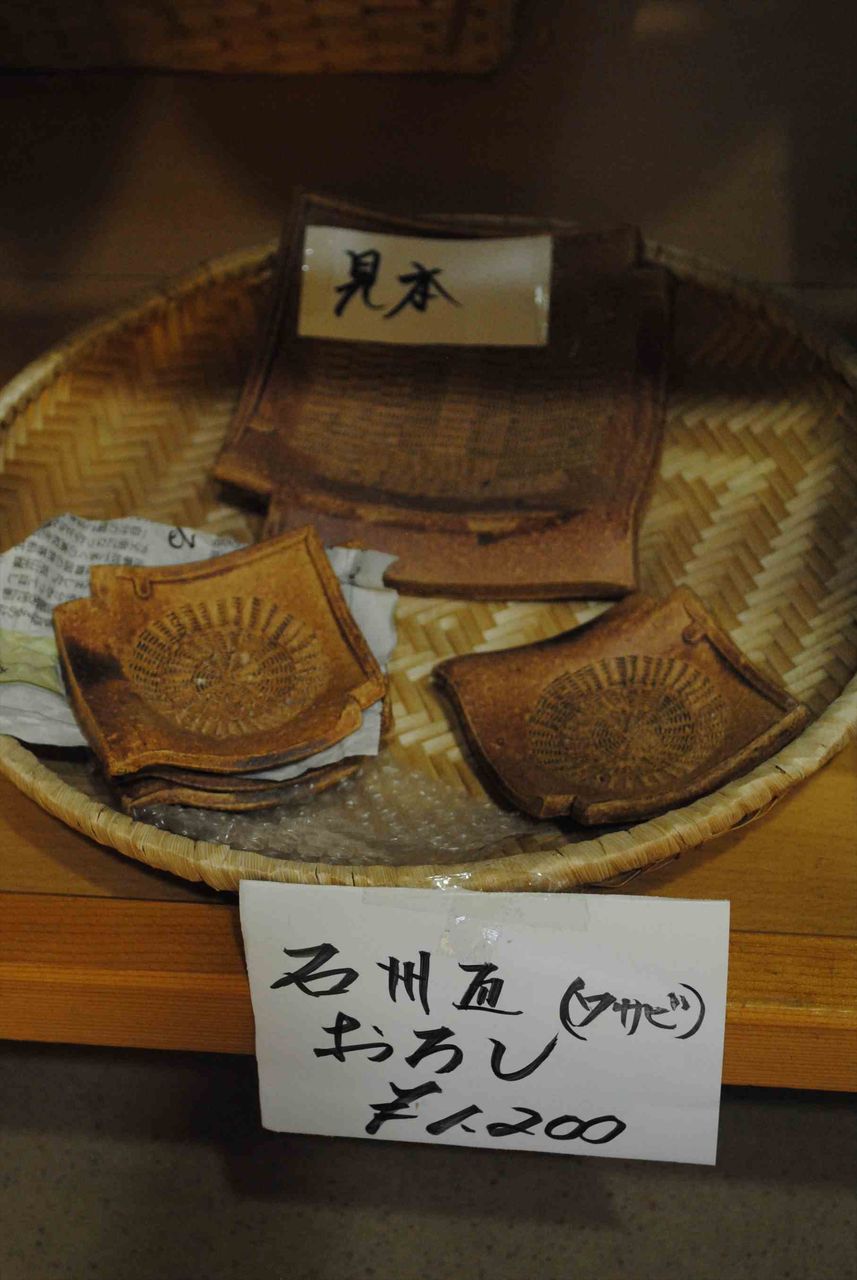 見本
石州瓦 (ワサビ)
おろし
¥1,200